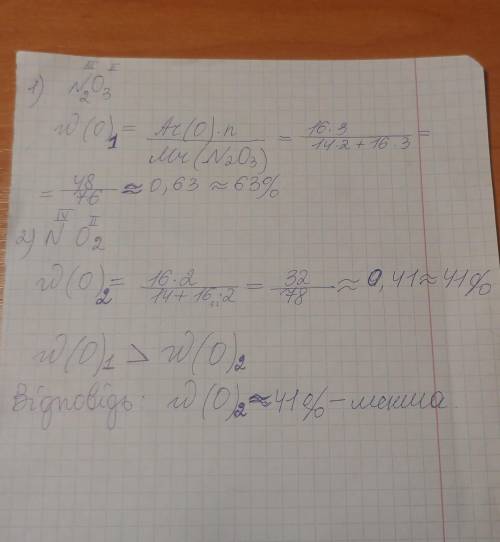 1) N₂O₃ III II
w(O)₁ = Ar(O)·n / Mr(N₂O₃) = 16·3 / 14·2 + 16·3 =
= 48/76 ≈ 0,63 ≈ 63%
2) N O₂ IV II
w(O)₂ = 16·2 / 14 + 16·2 = 32/78 ≈ 0,41 ≈ 41%
w(O)₁ > w(O)₂
Відповідь: w(O)₂ ≈ 41% – менша.